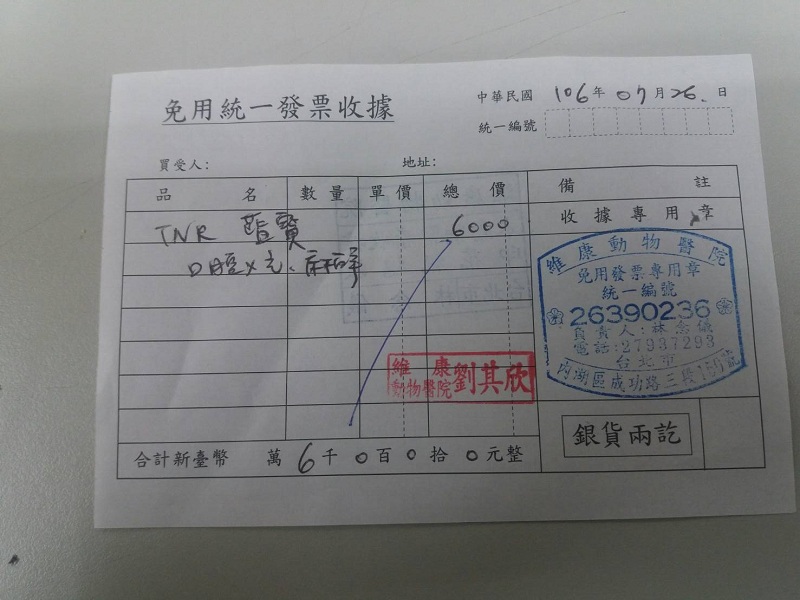 免用統一發票收據
中華民國 106 年 07 月 26 日
統一編號
買受人:
地址:
品名 數量 單價 總價 備註
收據專用章
TNR 醫寶 6000
口腔
維康動物醫院
免用發票專用章
統一編號
26390236
負責人:林念儀
電話:27937293
台北市
內湖區成功路三段150號
維康
動物醫院 劉其欣
合計新臺幣 萬 6 千 0 百 0 拾 0 元整
銀貨兩訖